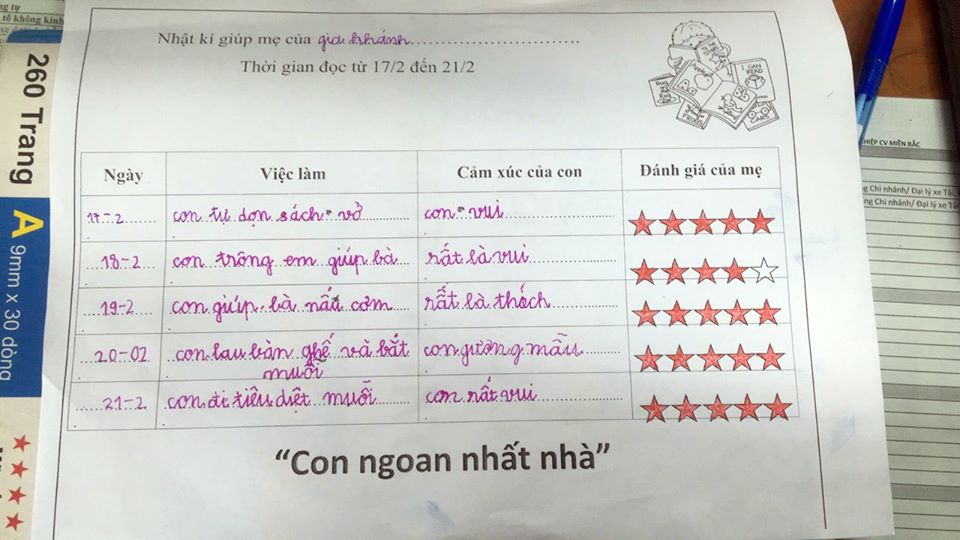 Nhật kí giúp mẹ của gia khánh
Thời gian đọc từ 17/2 đến 21/2
Ngày Việc làm Cảm xúc của con Đánh giá của mẹ
17-2 con tự dọn sách vở con vui
18-2 con trông em giúp bà rất là vui
19-2 con giúp bà nấu cơm rất là thích
20-02 con lau bàn ghế và bắt con gương mẫu
muỗi
21-2 con đi tiêu diệt muỗi con rất vui
“Con ngoan nhất nhà”
260 Trang
A 9mm x 30 dòng
tô không kính
I CAN READ
FROGS
CARS
HIỆP CV MIỀN BẮC
ng Chi nhánh/ Đại lý xe Tải
ng Chi nhánh/ Đại lý xe Tải